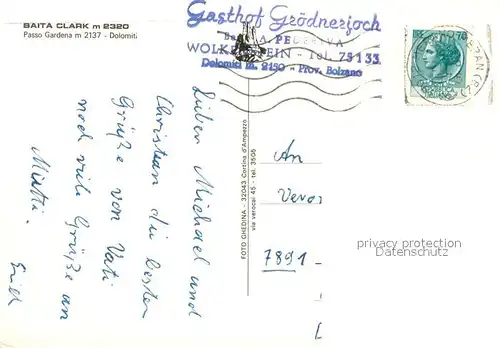 BAITA CLARK m 2320
Passo Gardena m 2137 - Dolomiti
Gasthof Grödnerjoch
WOLKENSTEIN - Tel. 75133
Dolomiti m. 2150 - Prov. Bolzano
Lieber Michael und
Christian die besten
Grüße von Vati
noch viele Grüße an
Mutti.
Erich
FOTO GHEDINA - 32043 Cortina d'Ampezzo
via verocai 45 - tel. 3506
An
7891
privacy protection
Datenschutz